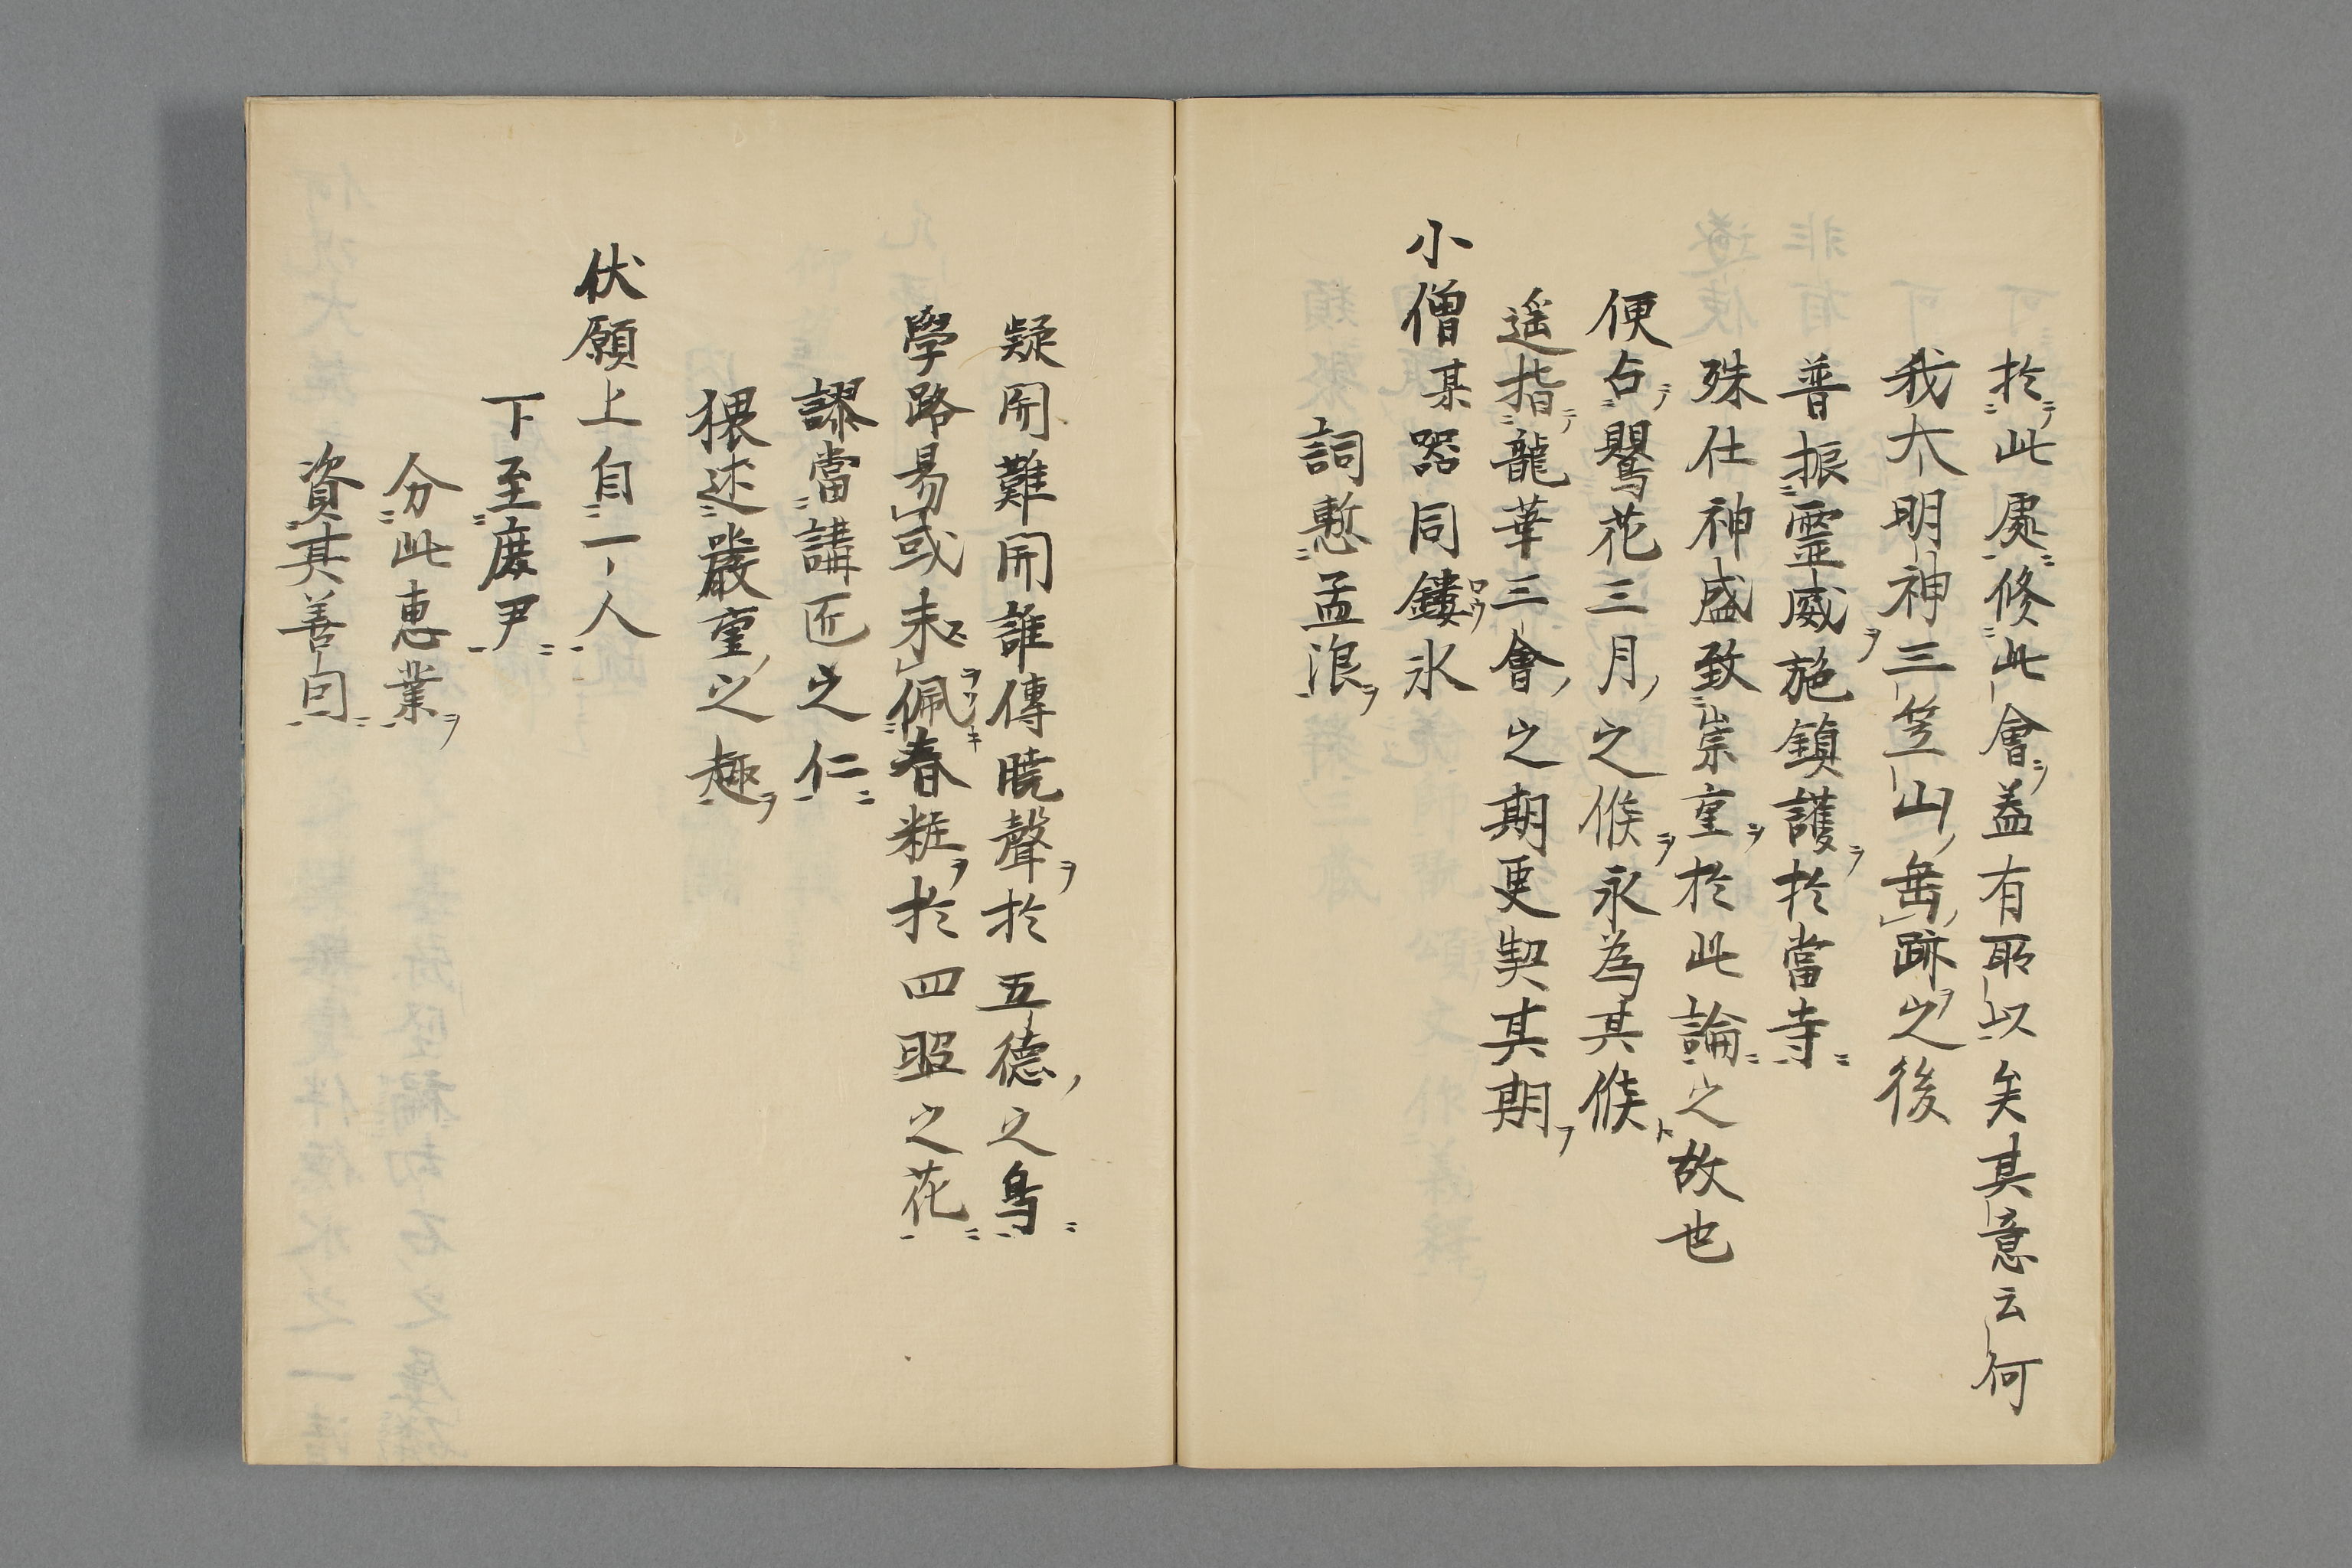 於此處修此會蓋有所以矣其意云何
我大明神三笠山垂跡之後
普振霊威施鎮護於當寺
殊仕神盛致崇重於此論之故也
便占鸎花三月之候永為其候
遥指龍華三會之期更契其期
小僧某器同鏤氷
詞慙孟浪
疑開難開誰傳曉聲於五德之鳥
學路易或未佩春粧於四照之花
謬當講匠之仁
猥述嚴重之趣
伏願上自一人
下至庶尹
分此惠業
資其善因